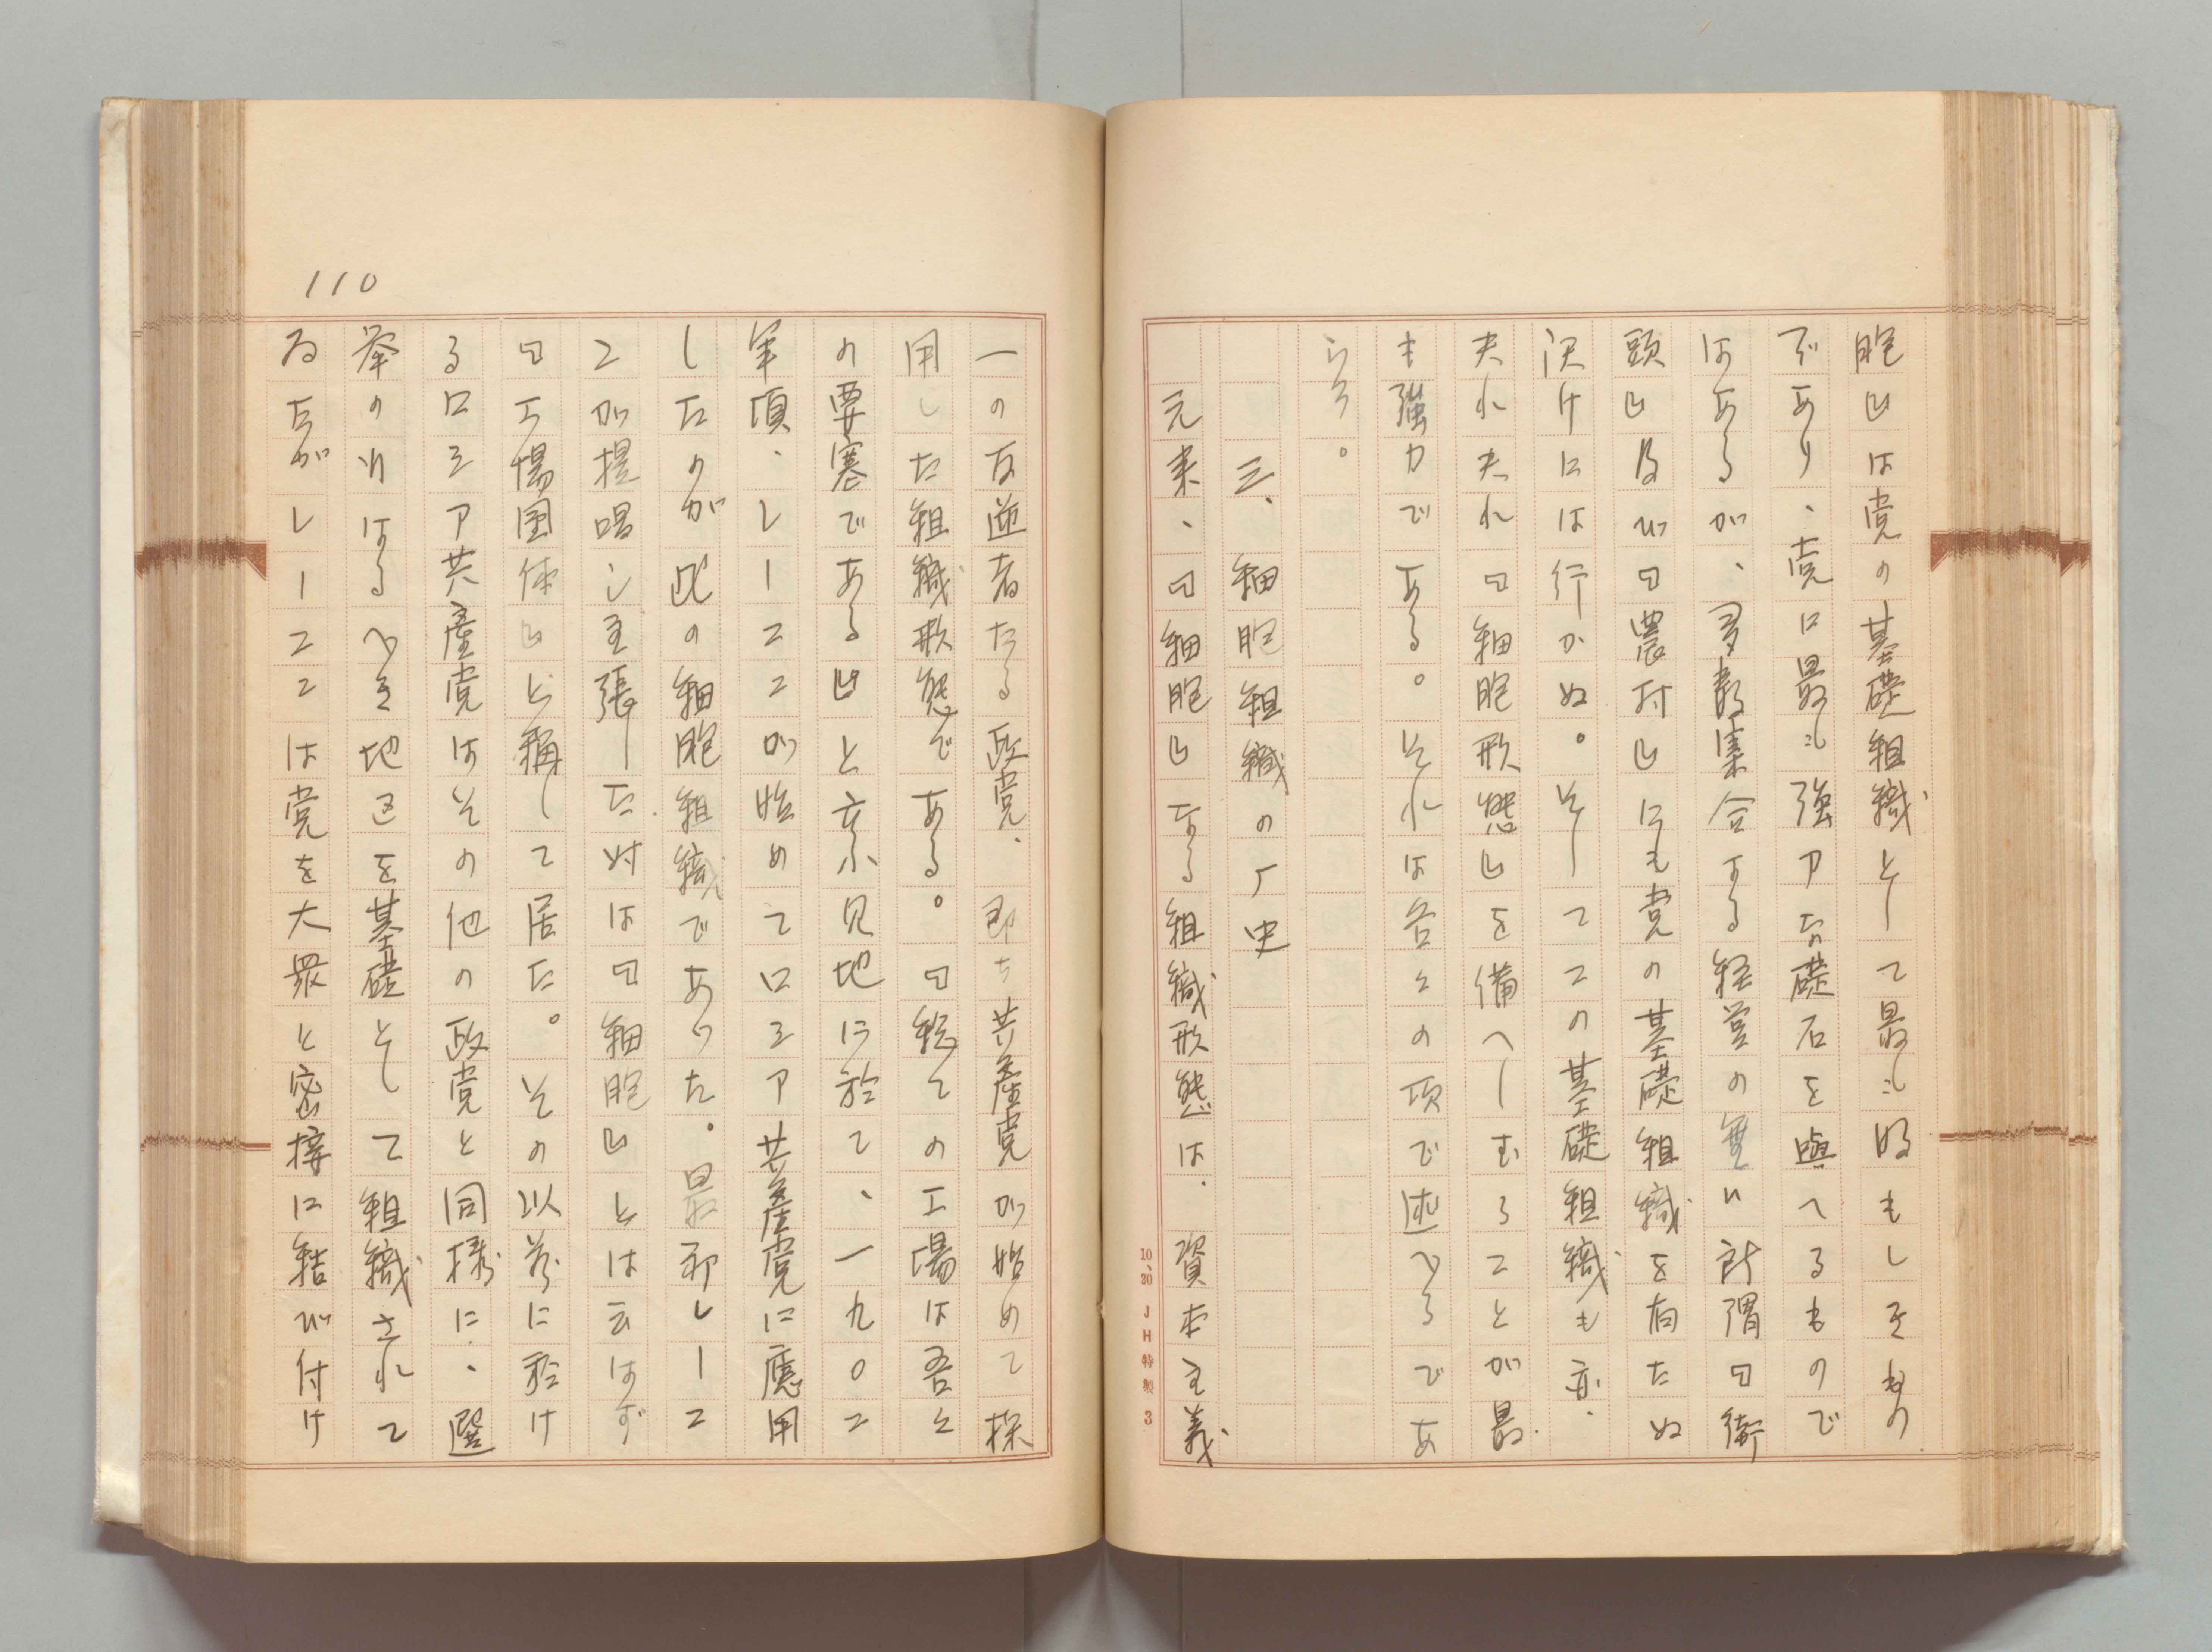 胞』は党の基礎組織として最も好もしきもの
であり、党に最も強アな礎石を與へるもので
はあるが、多数集合する経営の無い所謂『街
頭』及び『農村』にも党の基礎組織を有たぬ
訳けには行かぬ。そしてこの基礎組織も亦、
夫れ夫れ『細胞形態』を備へしむることが最
も強力である。それは各々の項で述べるであ
らう。
三、細胞組織の厂史
元来、『細胞』なる組織形態は、資本主義
10、20 JH特製 3
一の反逆者たる政党、即ち共産党が始めて採
用した組織形態である。『総ての工場は吾々
の要塞である』と云ふ見地に於て、一九〇二
年頃、レーニンが始めてロシア共産党に應用
したのが此の細胞組織であつた。最初レーニ
ンが提唱し主張した時は『細胞』とは云はず
『工場団体』と称して居た。その以前に於け
るロシア共産党はその他の政党と同様に、選
挙の行はるべき地区を基礎として組織されて
ゐたがレーニンは党を大衆と密接に結び付け
110